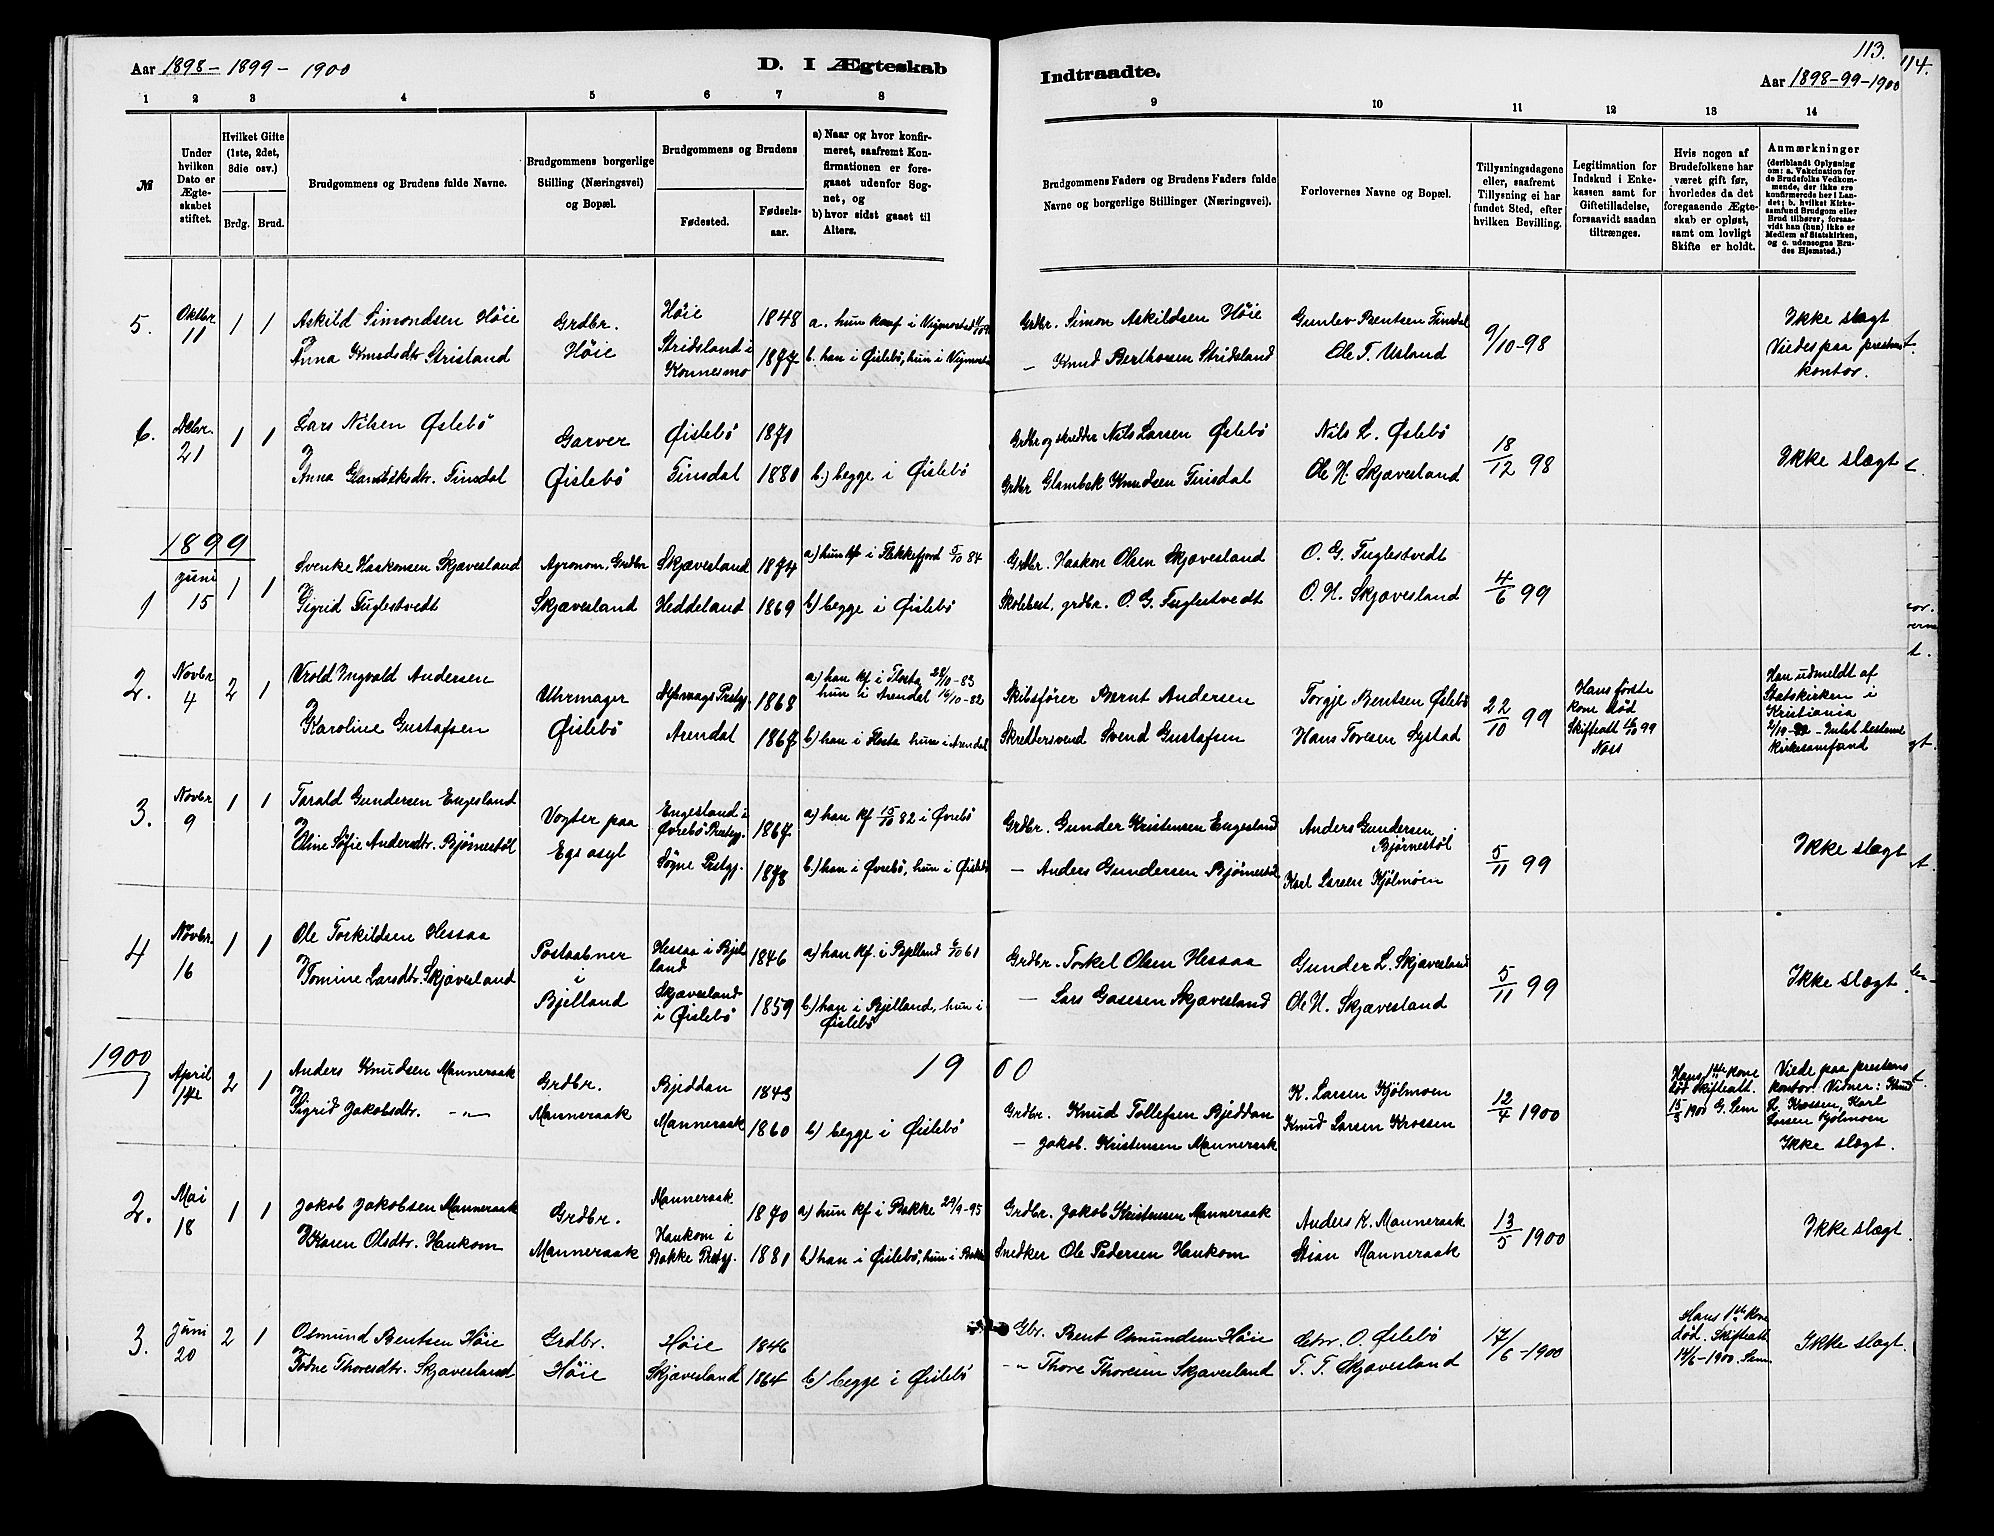 Aar 1898 - 1899 - 1900
D. I Ægteskab
Indtraadte.
113.
114.
Aar 1898-99-1900
1 2 3 4 5 6 7 8 9 10 11 12 13 14
№
Under hvilken Dato er Ægteskabet stiftet.
Hvilket Gifte (1ste, 2det, 3die osv.)
Brdg. Brud.
Brudgommens og Brudens fulde Navne.
Brudgommens borgerlige Stilling (Næringsvei) og Bopæl.
Brudgommens og Brudens
Fødested.
Fødselsaar.
a) Naar og hvor konfirmeret, saafremt Konfirmationen er foregaaet udenfor Sognet, og
b) hvor sidst gaaet til Alters.
Brudgommens Faders og Brudens Faders fulde Navne og borgerlige Stillinger (Næringsvei).
Forlovernes Navne og Bopæl.
Tillysningsdagene eller, saafremt Tillysning ei har fundet Sted, efter hvilken Bevilling.
Legitimation for Indskud i Enkekassen samt for Giftetilladelse, forsaavidt saadan tiltrænges.
Hvis nogen af Brudefolkene har været gift før, hvorledes da det foregaaende Ægteskab er opløst, samt om lovligt Skifte er holdt.
Anmærkninger
(deriblandt Oplysning om: a. Vakcination for de Brudefolks Vedkommende, der ikke ere konfirmerede her i Landet; b. hvilket Kirkesamfund Brudgom eller Brud tilhører, forsaavidt han (hun) ikke er Medlem af Statskirken, og c. udensogns Brudes Hjemsted.)
5. Oktbr. 11 1 1
Askild Simondsen Höie
Anna Knudsdtr Strisland
Grdbr. Höie
Höie 1848
Stridsland i Konnesmo 1877
a. hun konf i Vigmostad
b. han i Øislebö, hun i Vigmostad
Grdbr. Simon Askildsen Höie
— Knud Berthosen Stridsland
Gunlev Bentsen Finsdal
Ole T. Usland
9/10-98
Ikke slægt
Viedes paa prestens kontor.
6. Decbr. 21 1 1
Lars Nilsen Øslebö
Anna Glambeksdtr. Finsdal
Garver Øislebö
Øislebö 1871
Finsdal 1880
b.) begge i Øislebö
Grdbr og skredder Nils Larsen Øslebö
Grdbr Glambek Knudsen Finsdal
Nils L. Øslebö
Ole H. Skjævesland
18/12 98
Ikke slægt
1899
1 Juni 15 1 1
Svenke Haakonsen Skjævesland
Sigrid Fuglestvedt
Agronom, Grdbr Skjævesland
Skjævesland 1874
Heddeland 1869
a) hun kf i Flekkefjord 5/10 84
b) begge i Øislebö
Grdbr. Haakon Olsen Skjævesland
Skolebest, grdbr. O. G. Fuglestvedt
O. G. Fuglestvedt
O. H. Skjævesland
4/6 99
2. Novbr 4 2 1
Arold Ingvald Andersen
Karoline Gustafsen
Uhrmager Øislebö
Dybvaags Prestgj. 1868
Arendal 1867
a) han kf i Flosta 28/10-83
hun i Arendal 16/10-82
b) han i Flosta hun i Arendal
Skibsfører Bernt Andersen
Skreddersvend Svend Gustafsen
Torgje Bentsen Øslebö
Hans Toresen Systad
22/10 99
Hans første kone död
Skifteatt 16/10 99
Næss
Han udmeldt af Statskirken i Kristiania
Intet bestemt kirkesamfund
3. Novbr 9 1 1
Tarald Gundersen Engesland
Oline Sofie Andersdtr. Bjørnestöl
Vogter paa Egs asyl
Engesland i Øvrebö Prestgj. 1867
Søgne Prestgj. 1878
a) han kf 15/10 82 i Øvrebö
b.) han i Øvrebö, hun i Øislebö
Grdbr. Gunder Kristensen Engesland
— Anders Gundersen Bjørnestöl
Anders Gundersen Bjørnestöl
Karl Larsen Kjölmoen
5/11 99
Ikke slægt
4 Novbr. 16 1 1
Ole Torkildsen Hessaa
Tomine Larsdtr. Skjævesland
Postaabner i Bjelland
Hessaa i Bjelland 1846
Skjævesland i Øislebö 1859
a) han kf. i Bjelland 6/10 61
b) han i Bjelland, hun i Øislebö
Grdbr. Torkel Olsen Hessaa
— Lars Gasesen Skjævesland
Gunder L. Skjævesland
Ole H. Skjævesland
5/11 99
Ikke slægt.
1900
1900
1 April 14de 2 1
Anders Knudsen Manneraak
Sigrid Jakobsdtr. —"—
Grdbr. Manneraak
Bjeddan 1843
Manneraak 1860
b) begge i Øislebö
Grdbr. Knud Tollefsen Bjeddan
— Jakob. Kristensen Manneraak
K. Larsen Kjölmoen
Knud Larsen Krossen
12/4 1900
Hans 1ste kone död Skifteatt. 15/3 1900 G. Sem
Viede paa prestens kontor. Vidner: Knud L. Krossen, Karl Larsen Kjölmoen
Ikke slægt.
2. Mai 18 1 1
Jakob Jakobsen Manneraak
Karen Olsdtr. Haukom
Grdbr. Manneraak
Manneraak 1870
Haukom i Bakke Prestgj. 1881
a) hun kf i Bakke 29/9-95
b) han i Øislebö, hun i Bakke
Grdbr. Jakob Kristensen Manneraak
Snedker Ole Pedersen Haukom
Anders K. Manneraak
Stian Manneraak
13/5 1900
Ikke slægt
3. Juni 20 2 1
Osmund Bentsen Höie
Todne Thoresdtr. Skjævesland
Grdbr. Höie
Höie 1846
Skjævesland 1864
b) begge i Øislebö
Gbr. Bent Osmundsen Höie
—"— Thore Thoresen Skjævesland
Chr. O. Øslebö
T. T. Skjævesland
17/6-1900
Hans 1ste kone död. Skifteatt 14/6-1900. Sem
Ikke slægt.